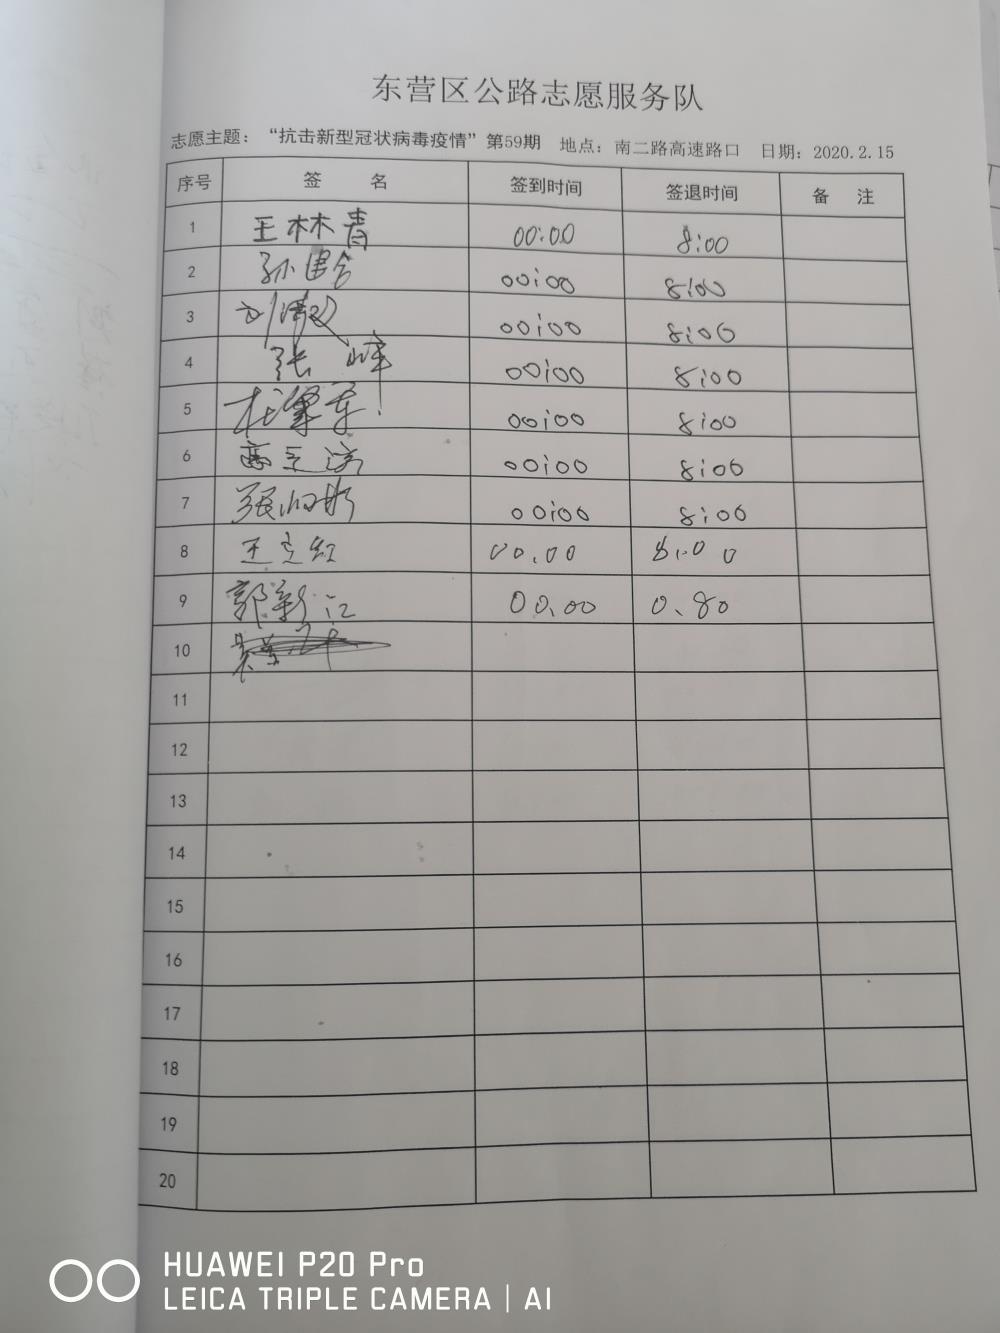 东营区公路志愿服务队
志愿主题：“抗击新型冠状病毒疫情”第59期 地点：南二路高速路口 日期：2020.2.15
序号 签 名 签到时间 签退时间 备 注
1 王林青 00:00 8:00
2 00:00 8:00
3 00:00 8:00
4 张峰 00:00 8:00
5 00:00 8:00
6 00:00 8:00
7 00:00 8:00
8 王立红 00.00 8.00
9 郭新江 00.00 0.80
10
11
12
13
14
15
16
17
18
19
20
HUAWEI P20 Pro
LEICA TRIPLE CAMERA | AI